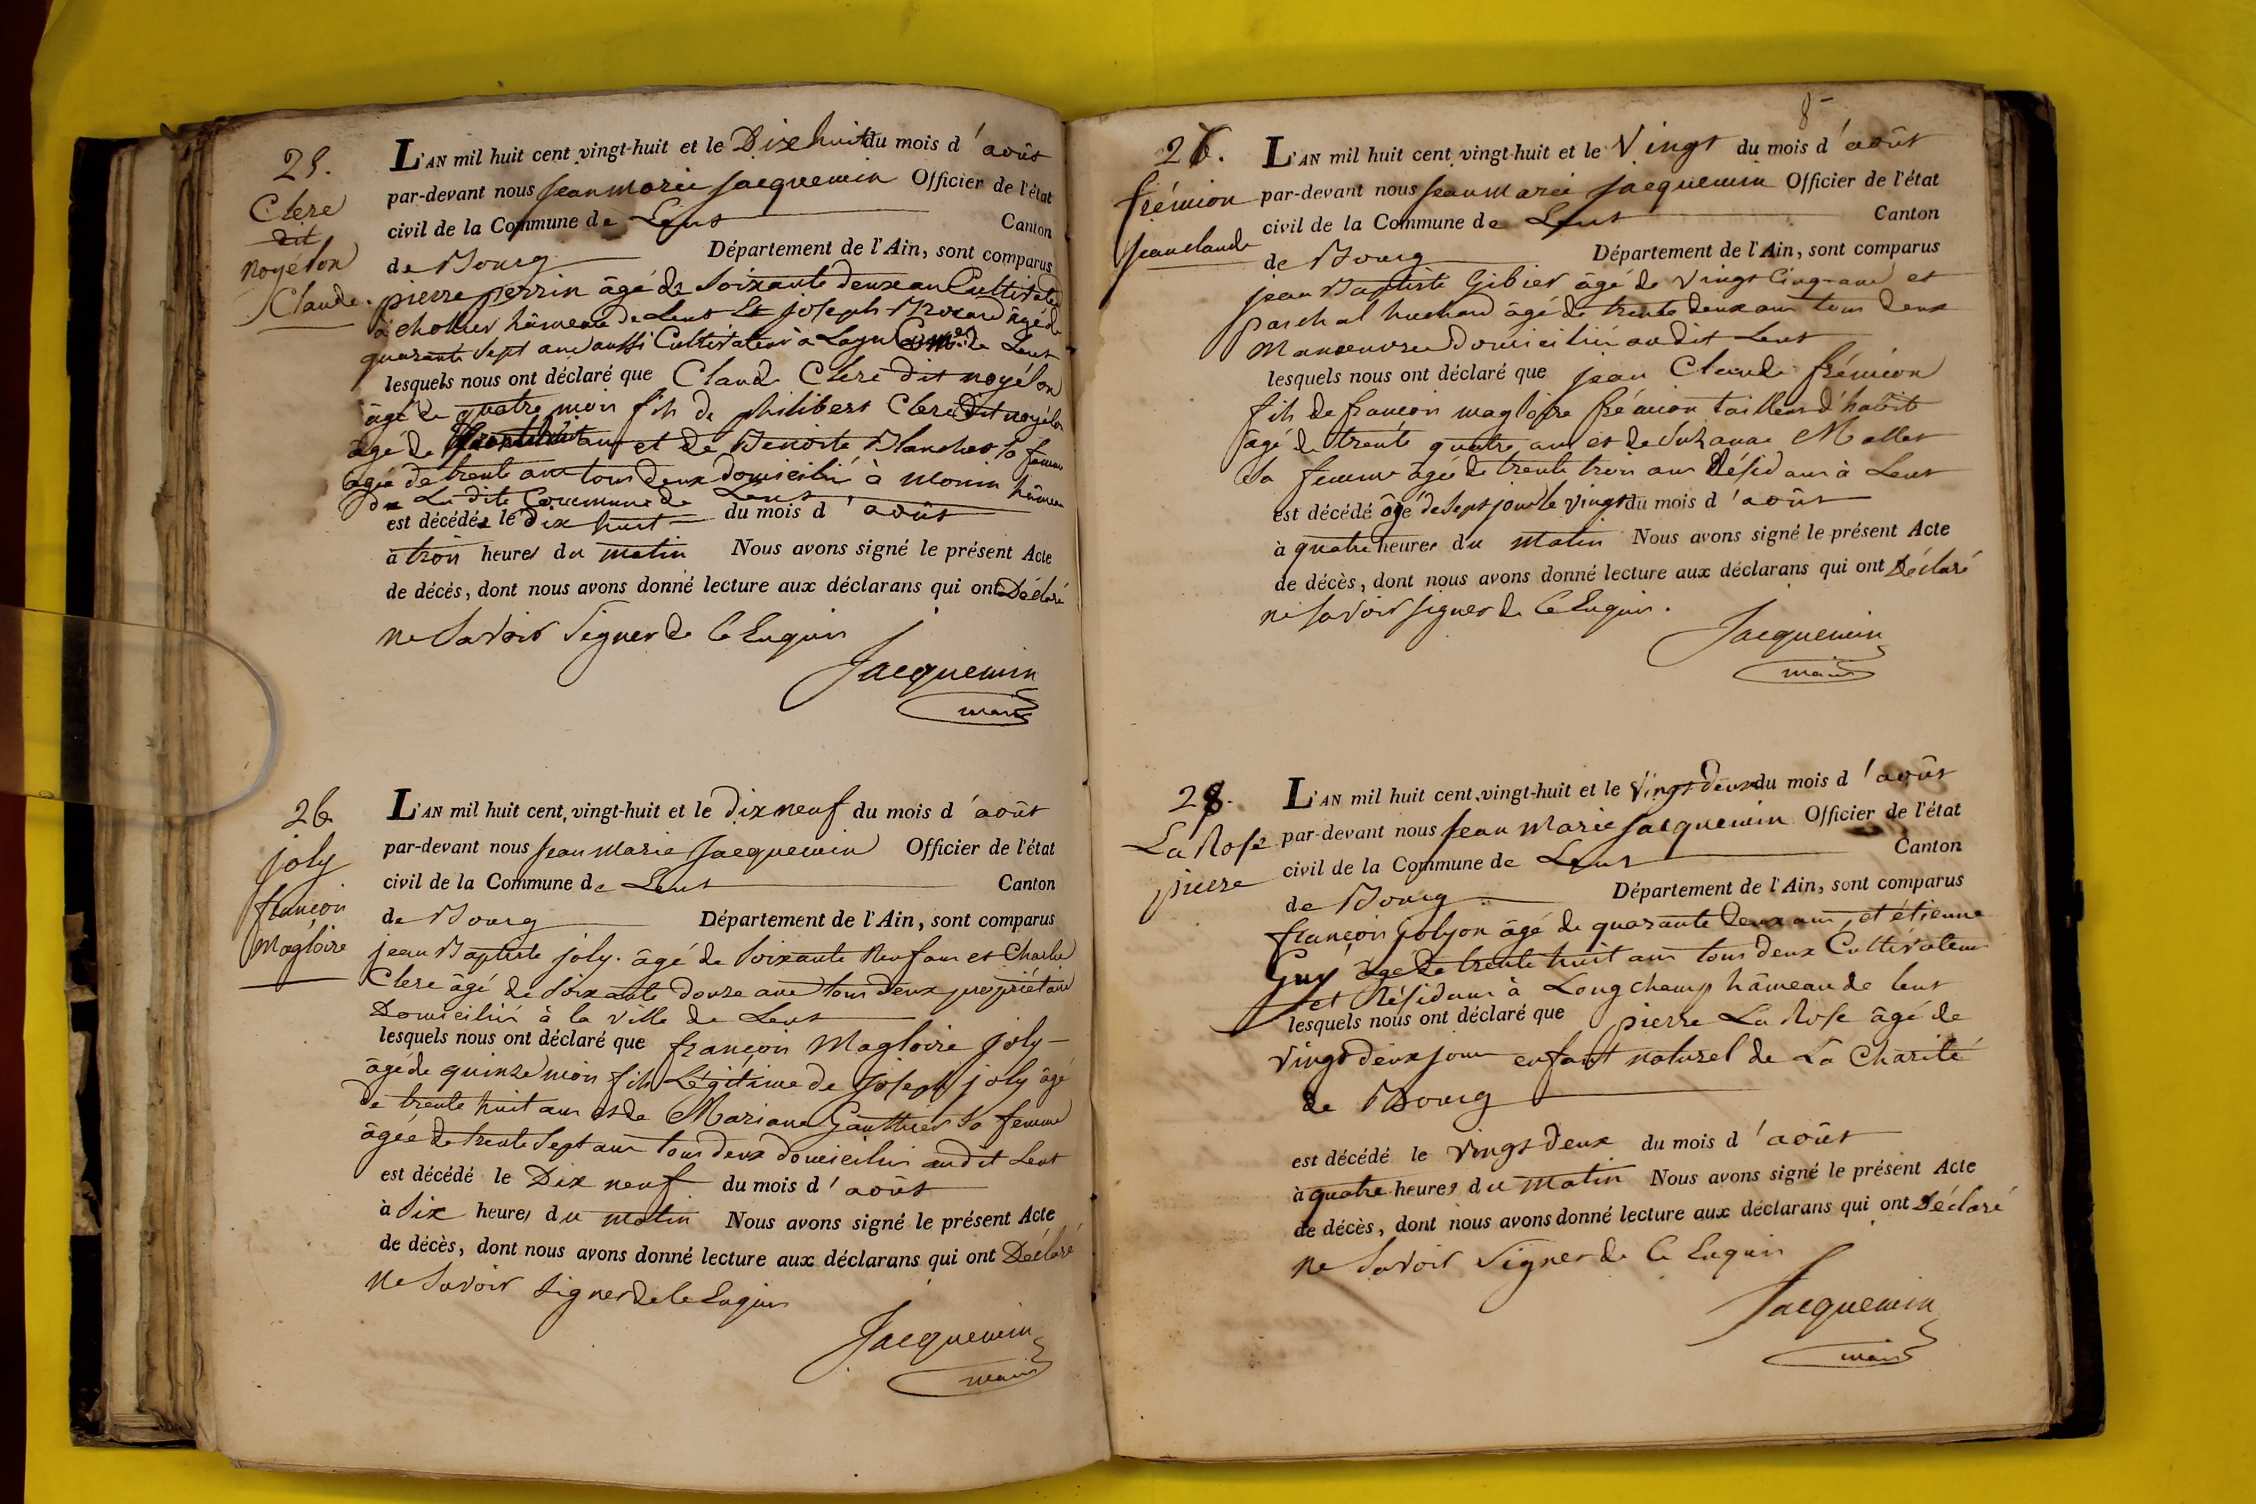 25.
Clere
dit
noyéton
Claude.
L'AN mil huit cent vingt-huit et le Dixhuit du mois d'août
par-devant nous jean marie jacquemin Officier de l'état
civil de la Commune de Lent Canton
de Bourg Département de l'Ain, sont comparus
pierre perrin âgé de Soixante deux an Cultivateur
à chollier hâmeau de Lent Et joseph Brocard âgé de
quarante Sept ans aussi Cultivateur à Com.e de Lent
lesquels nous ont déclaré que Claude Clere dit noyéton
âgé de quatre mois fils de philibert Clere Dit noyéton
âgé de ans et de Benoite Blanchet sa femme
âgée de trente ans tous deux domicilié à monin hâmeau
de La dite Commune de Lent
est décédé le dix huit du mois d'août
à trois heures du matin Nous avons signé le présent Acte
de décès, dont nous avons donné lecture aux déclarans qui ont Déclaré
ne Savoir Signer de ce Enquis
Jacquemin
maire
26
joly
françois
magloire
L'AN mil huit cent vingt-huit et le dixneuf du mois d'août
par-devant nous jean marie jacquemin Officier de l'état
civil de la Commune de Lent Canton
de Bourg Département de l'Ain, sont comparus
jean Baptiste joly. âgé de Soixante Neuf ans et Charle
Clere âgé de Soixante douze ans tous deux propriétaire
Domicilié à la ville de Lent
lesquels nous ont déclaré que françois Magloire joly
âgé de quinze mois fils Légitime de joseph joly âgé
de trente huit ans et de Mariane Gauthier sa femme
âgée de trente Sept ans tous deux domiciliés audit Lent
est décédé le Dix neuf du mois d'août
à Six heures du matin Nous avons signé le présent Acte
de décès, dont nous avons donné lecture aux déclarans qui ont Déclaré
ne Savoir Signer de ce Enquis
Jacquemin
maire
8
27.
frémion
jean claude
L'AN mil huit cent vingt-huit et le Vingt du mois d'août
par-devant nous jean marie jacquemin Officier de l'état
civil de la Commune de Lent Canton
de Bourg Département de l'Ain, sont comparus
jean Baptiste Gibier âgé de Vingt Cinq ans et
paschal huchard âgé de trente deux ans tous deux
Manoeuvre domicilié audit Lent
lesquels nous ont déclaré que jean Claude frémion
fils de françois magloire frémion tailleur d'habit
âgé de trente quatre ans et de Suzanne Mallet
Sa femme âgée de trente trois ans Résidans à Lent
est décédé âgé de Sept jour le Vingt du mois d'août
à quatre heures du matin Nous avons signé le présent Acte
de décès, dont nous avons donné lecture aux déclarans qui ont Déclaré
ne Savoir signer de ce Enquis.
Jacquemin
maire
28.
La Rose
pierre
L'AN mil huit cent vingt-huit et le Vingt deux du mois d'août
par-devant nous jean Marie jacquemin Officier de l'état
civil de la Commune de Lent Canton
de Bourg Département de l'Ain, sont comparus
françois jolyon âgé de quarante deux ans, et étienne
Guy âgé de trente huit ans tous deux Cultivateur
et Résidans à Longchamp hâmeau de Lent
lesquels nous ont déclaré que pierre La Rose âgé de
vingt deux jour enfant naturel de La Charité
de Bourg
est décédé le vingt deux du mois d'août
à quatre heures du matin Nous avons signé le présent Acte
de décès, dont nous avons donné lecture aux déclarans qui ont Déclaré
ne Savoir Signer de ce Enquis
Jacquemin
maire